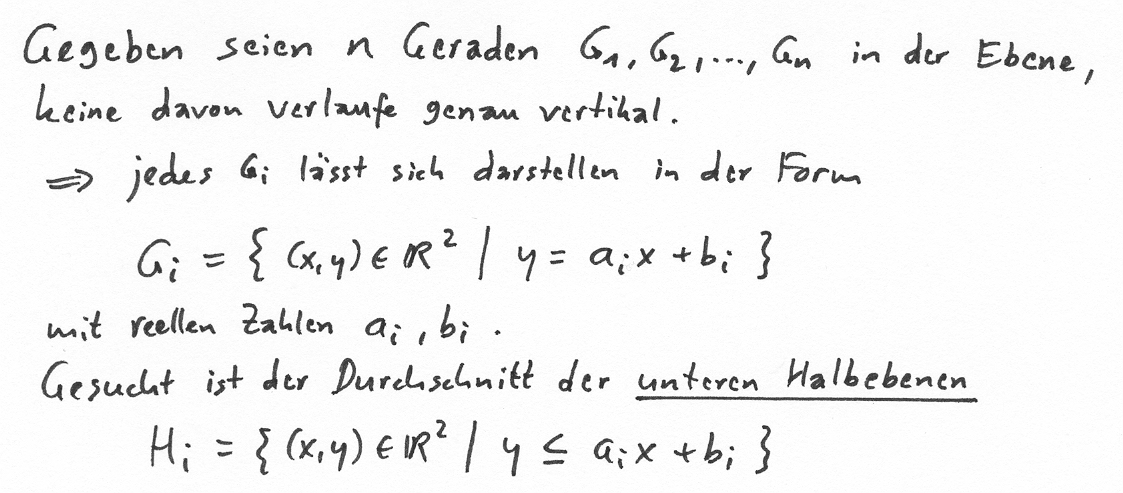 Gegeben seien n Geraden G₁, G₂, ..., Gn in der Ebene,
keine davon verlaufe genau vertikal.
⇒ jedes Gᵢ lässt sich darstellen in der Form
Gᵢ = { (x,y) ∈ ℝ² | y = aᵢx + bᵢ }
mit reellen Zahlen aᵢ, bᵢ.
Gesucht ist der Durchschnitt der unteren Halbebenen
Hᵢ = { (x,y) ∈ ℝ² | y ≤ aᵢx + bᵢ }